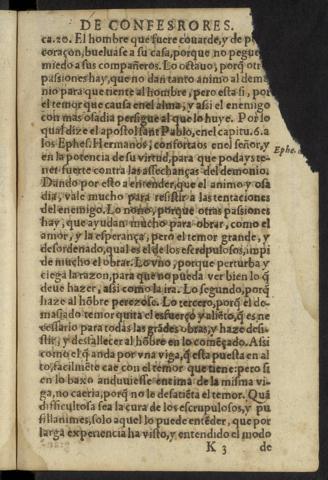 DE CONFESSORES.
ca. 20. El hombre que fuere couarde, y de
coraçon, bueluase a su casa, porque no pegue
miedo a sus compañeros. Lo octauo, porq̃ otr
passiones hay, que no dan tanto animo al de
nio para que tiente al hombre, pero esta si, por
el temor que causa en el alma, y assi el enemigo
con mas osadia persigue al que lo huye. Por lo
qual dize el apostol sant Pablo, en el capitu. 6. a
los Ephes. Hermanos, confortaos en el señor, y
Ephe.
en la potencia de su virtud, para que podays te-
ner fuerte contra las assechanças del demonio.
Dando por esto a entender, que el animo y osa
dia, vale mucho para resistir a las tentaciones
del enemigo. Lo nono, porque otras passiones
hay, que ayudan mucho para obrar, como el
amor, y la esperança, pero el temor grande, y
desordenado, qual es el de los escrupulosos, impi
de mucho el obrar. Lo vno, porque perturba y
ciega la razon, para que no pueda ver bien lo q̃
deue hazer, assi como la ira. Lo segundo, porq̃
haze al hõbre perezoso. Lo tercero, porq̃ el de-
masiado temor quita el esfuerço y aliẽto, q̃ es ne
cessario para todas las grãdes obras, y haze desi-
stir, y desfallecer al hõbre en lo començado. Assi
como el q̃ anda por vna viga, q̃ esta puesta en al
to, facilmẽte cae con el temor que tiene: pero si
en lo baxo anduuiesse encima de la misma vi-
ga, no caeria, porq̃ no le desatiẽta el temor. Quã
difficultosa sea la cura de los escrupulosos, y pu
sillanimes, solo aquel lo puede entẽder, que por
larga experiencia ha visto, y entendido el modo
K 3 de